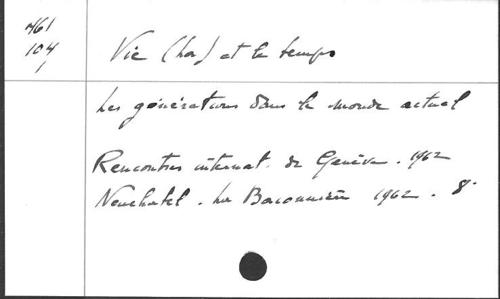 A61
104
1
Vie (La) et le temps
Les générations dans le monde actuel
Rencontres internat. de Genève. 1962
Neuchatel. La Baconnière 1962. 8°